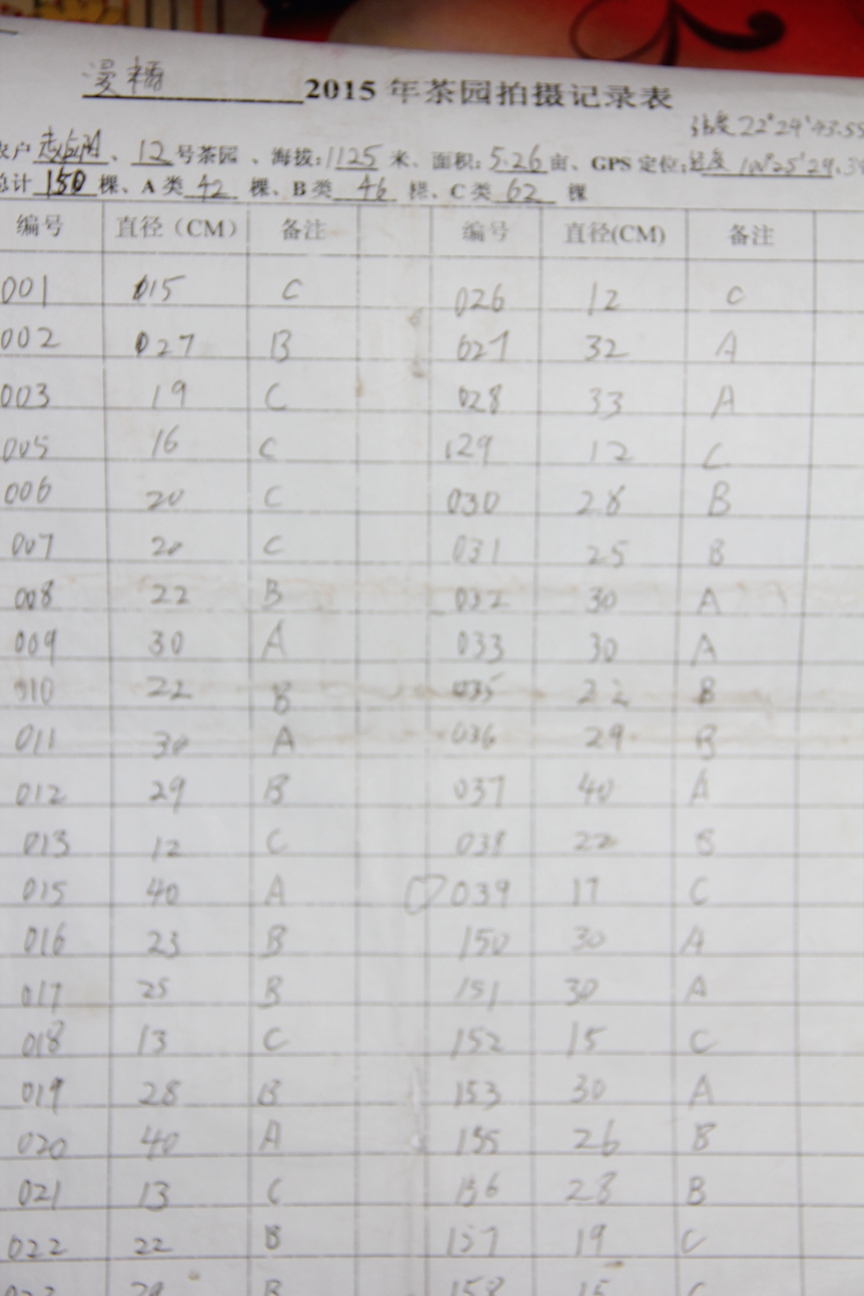 2015年茶园拍摄记录表
纬度22°24'43.55
农户 、12号茶园、海拔:1125米、面积:5.26亩、GPS定位:经度100°25'29.
总计150棵、A类42棵、B类46棵、C类62棵
编号 直径(CM) 备注 编号 直径(CM) 备注
001 015 C 026 12 C
002 027 B 027 32 A
003 19 C 028 33 A
005 16 C 129 12 C
006 20 C 030 28 B
007 20 C 031 25 B
008 22 B 032 30 A
009 30 A 033 30 A
010 22 B 035 22 B
011 30 A 036 29 B
012 29 B 037 40 A
013 12 C 038 22 B
015 40 A 039 17 C
016 23 B 150 30 A
017 25 B 151 30 A
018 13 C 152 15 C
019 28 B 153 30 A
020 40 A 155 26 B
021 13 C 156 28 B
022 22 B 157 19 C
B 158 15 C